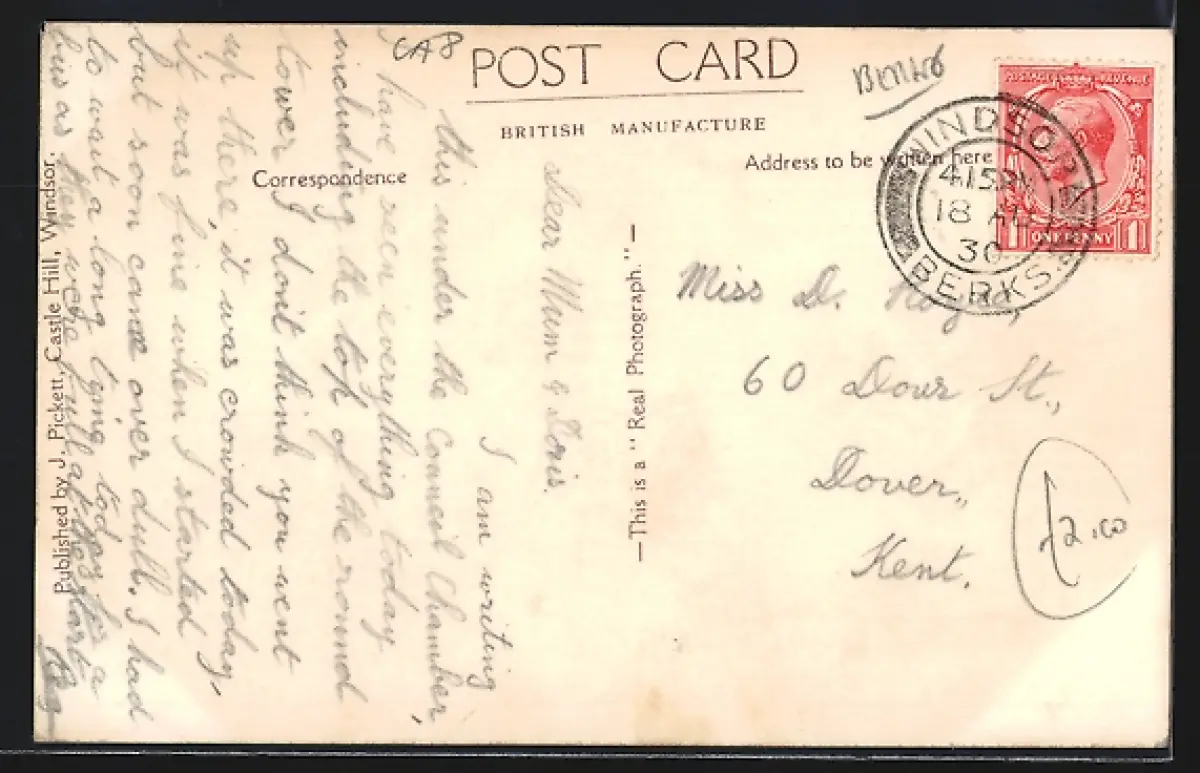 POST CARD
BRITISH MANUFACTURE
Correspondence
Address to be written here
CA8
Berks
WINDSOR
4.15 PM
18 AU
30
BERKS.
POSTAGE REVENUE
1 ONE PENNY 1
Dear Mum & Doris.
I am writing
this under the Council Chamber,
have seen everything today
including the top of the round
tower I don't think you went
up there, it was crowded today,
it was fine when I started
but soon came over dull. I had
to wait a long time today for a
bus as they were full at the start
Reg
Miss D.
60 Dour St.,
Dover,
Kent.
£2.00
—This is a "Real Photograph."—
Published by J. Pickett, Castle Hill, Windsor.